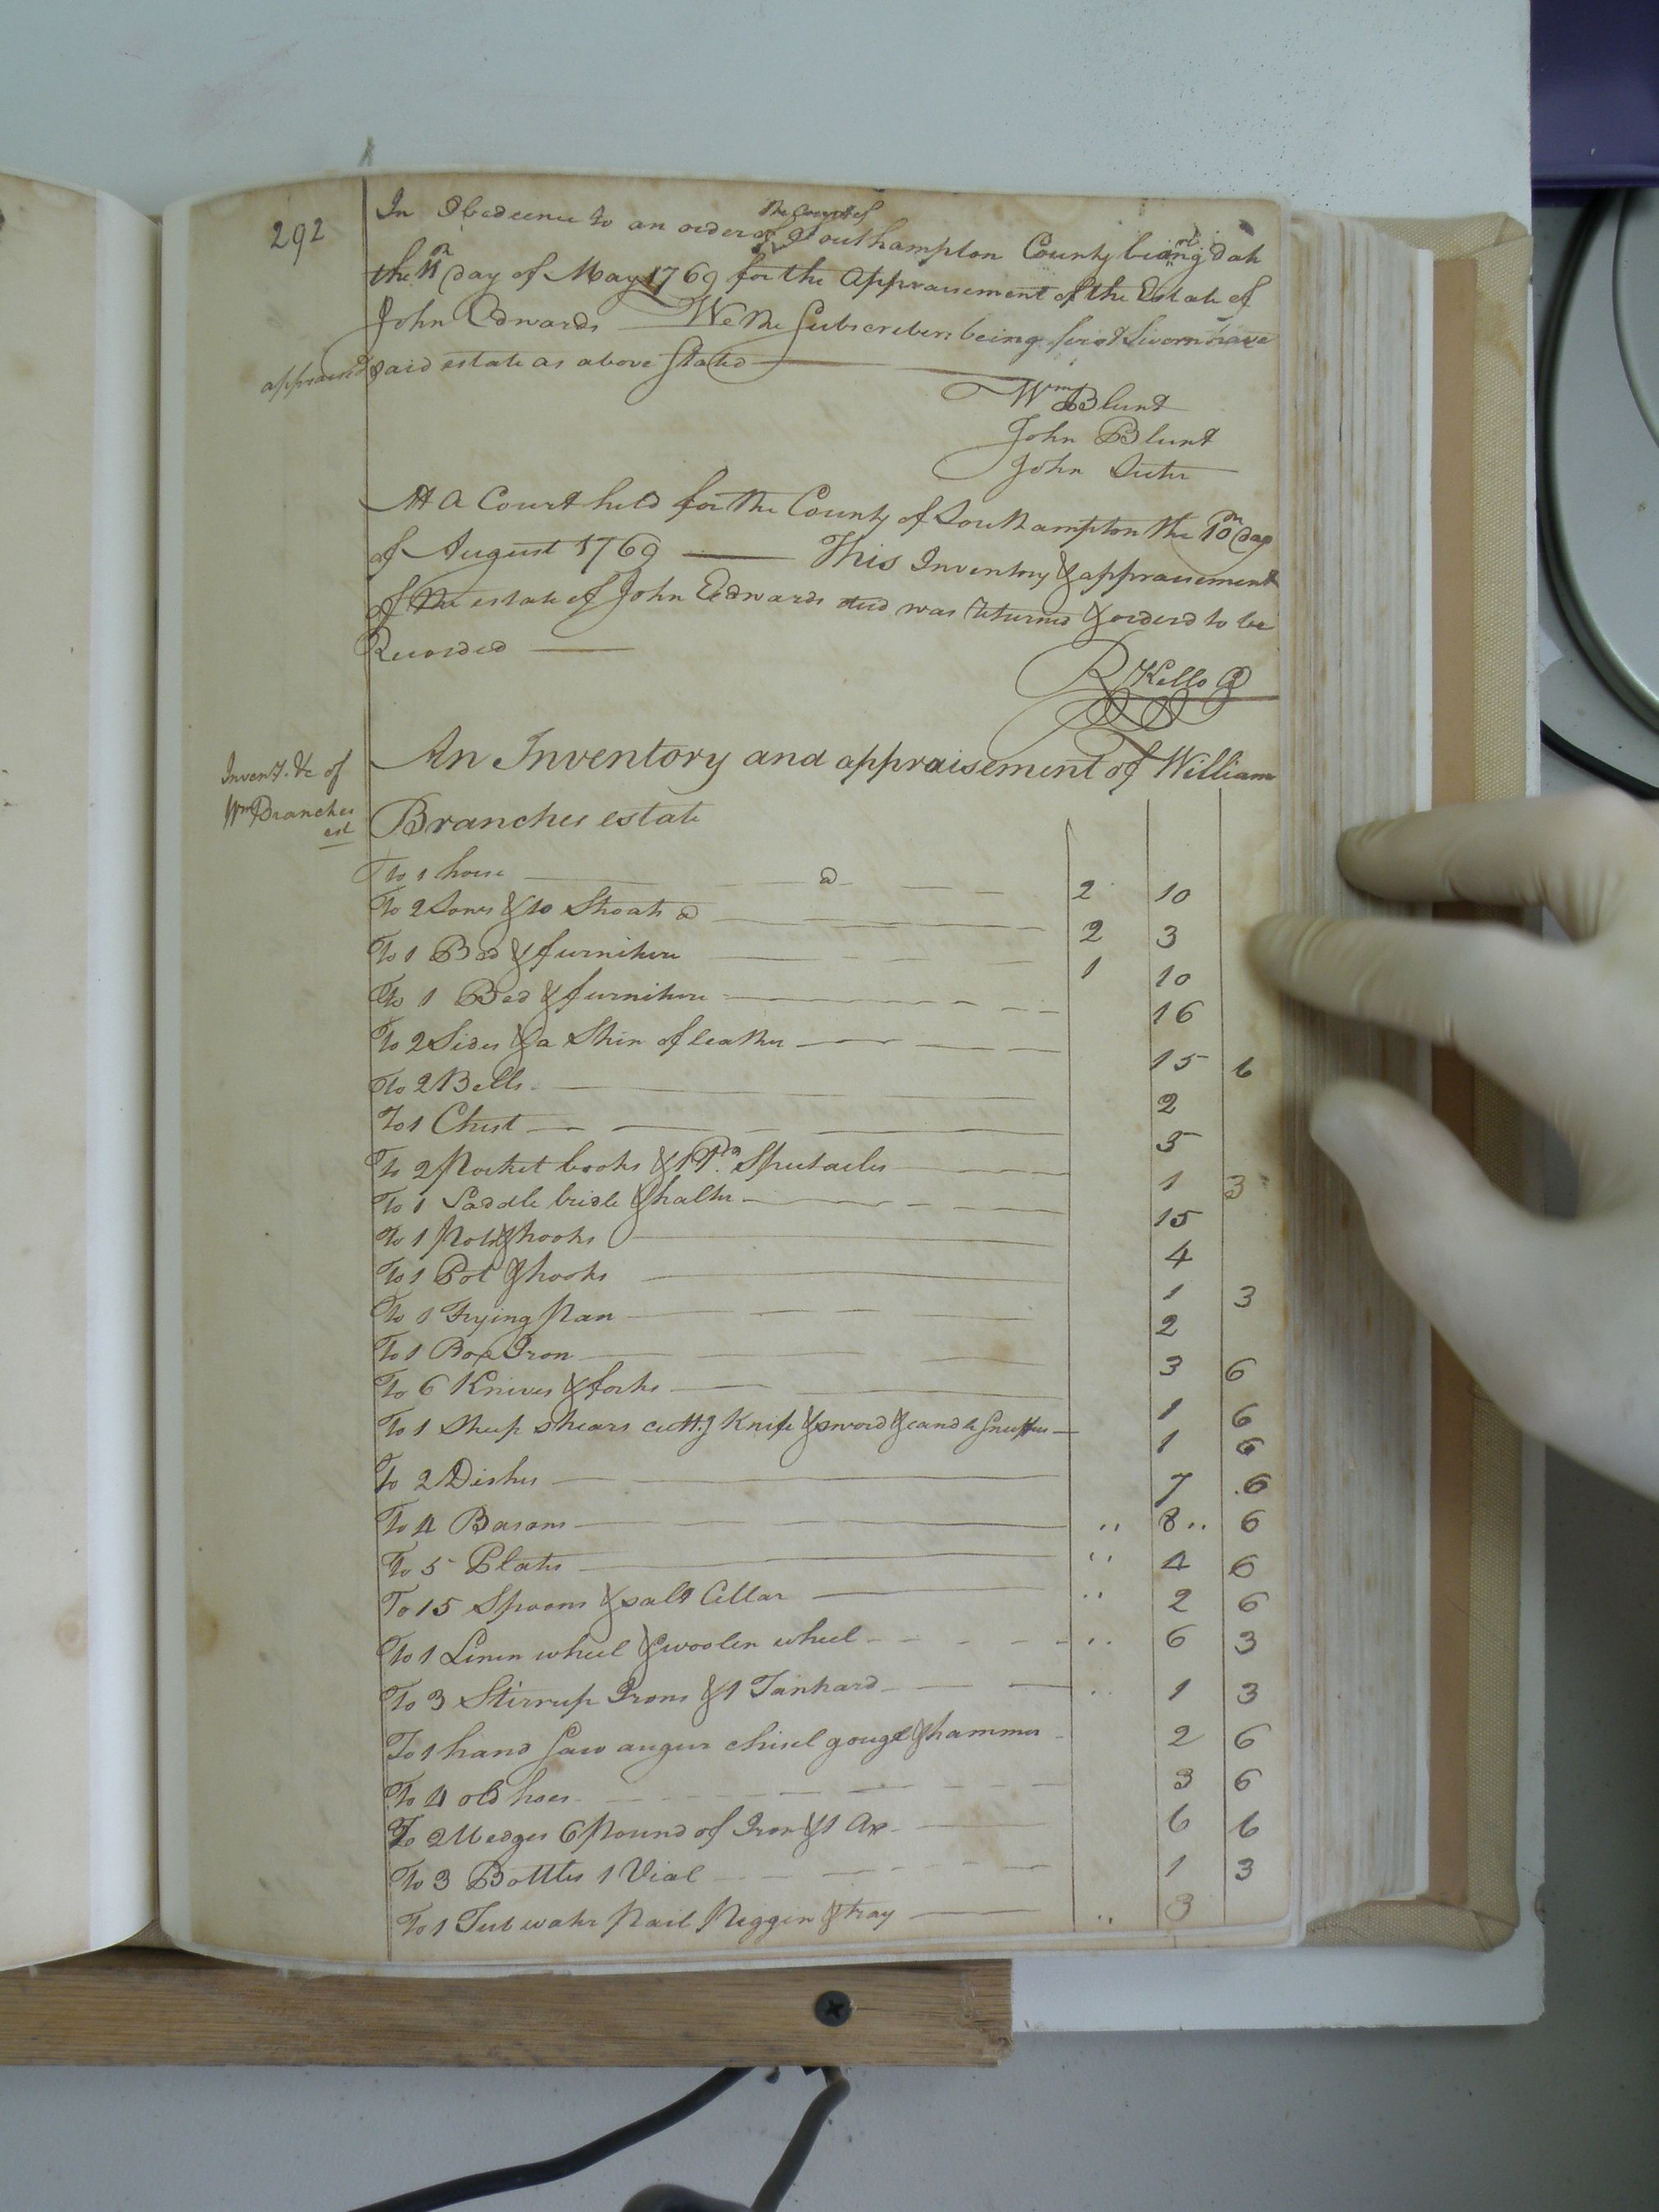 292
In Obedeence to an order of the Court of Southampton County bearing date
the 11th day of May 1769 for the Appraisement of the Estate of
John Edwards — We the Subscribers being first Sworn have
appraised said estate as above Stated —
Wm Blunt
John Blunt
John Suter
At a Court held for the County of Southampton the 10th day
of August 1769 — This Inventory & appraisement
of the estate of John Edwards decd was returned & orderd to be
Recorded —
R Kello
Invent. &c of
Wm Branches
est
An Inventory and appraisement of William
Branches estate
To 1 horse @ 2 10
To 2 Sows & 10 Shoats @ 2 3
To 1 Bed & furniture 1 10
To 1 Bed & furniture 16
To 2 Sides & a Skin of leather 15 6
To 2 Bells 2
To 1 Chest 5
To 2 Pocket books & 1 Pr. Spectacles 1 3
To 1 Saddle bridle & halter 15
To 1 Pot & hooks 4
To 1 Pot & hooks 1 3
To 1 Frying Pan 2
To 1 Box Iron 3 6
To 6 Knives & forks 1 6
To 1 Sheep shears cuttg Knife & sword & candle Snuffers 1 6
To 2 Dishes 7 6
To 4 Basons " 8 " 6
To 5 Plates " 4 6
To 15 Spoons & salt Cellar " 2 6
To 1 Linen wheel & woolen wheel " 6 3
To 3 Stirrup Irons & 1 Tankard " 1 3
To 1 hand Saw augur chisel gouge & hammer 2 6
To 4 old hoes 3 6
To 2 Wedges 6 Pound of Iron & 1 Ax 6 6
To 3 Bottles 1 Vial 1 3
To 1 Tub water Pail Piggin & tray " 3